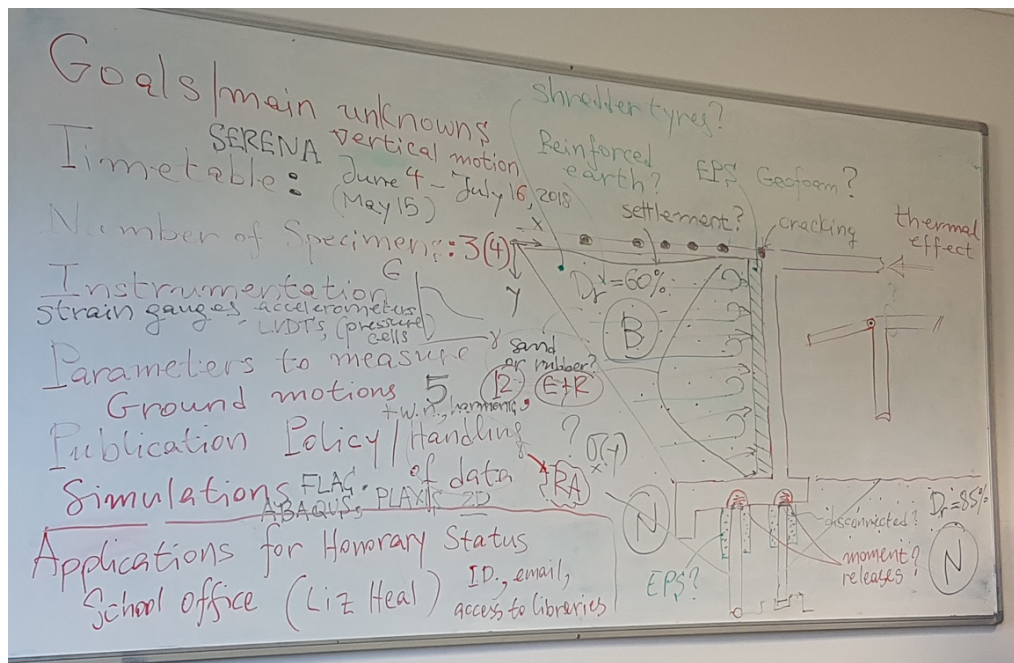 Goals/main unknowns
SERENA vertical motion
Timetable: June 4 - July 16, 2018
(May 15)
Number of Specimens: 3(4)
Instrumentation
strain gauges - accelerometers
- LVDT's, (pressure cells)
Parameters to measure
Ground motions 5 12 E+R
sand or rubber?
+ w.n., harmonic
Publication Policy/Handling of data ?
Simulations FLAC.
ABAQUS, PLAXIS 2D
RA
Applications for Honorary Status
School office (Liz Heal) ID., email,
access to libraries
shredder tyres?
Reinforced
earth?
EPS Geofoam?
settlement?
cracking
thermal
effect
x
y
G
γ
Dr=60%
B
N
EPS?
disconnected?
moment?
releases!
Dr=85%
N